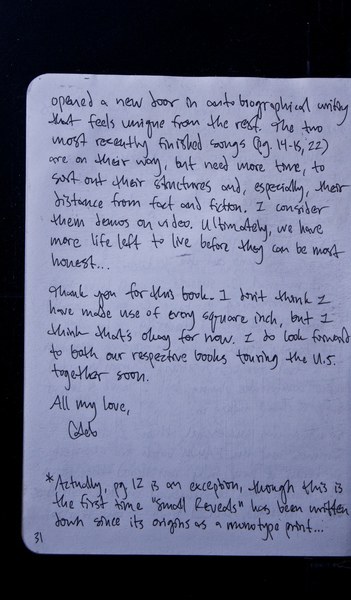 opened a new door in autobiographical writing
that feels unique from the rest. The two
most recently finished songs (pg. 14-15, 22)
are on their way, but need more time, to
sort out their structures and, especially, their
distance from fact and fiction. I consider
them demos on video. Ultimately, we have
more life left to live before they can be most
honest...
Thank you for this book. I don't think I
have made use of every square inch, but I
think that's okay for now. I do look forward
to both our respective books touring the U.S.
together soon.
All my love,
Caleb
*Actually, pg 12 is an exception, though this is
the first time "Small Reveals" has been written
down since its origins as a monotype print...
31